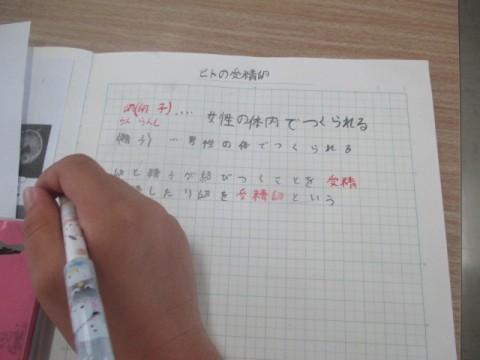 ヒトの受精卵
卵(卵子)… 女性の体内でつくられる
らん らんし
精子 … 男性の体でつくられる
卵と精子が結びつくことを 受精
したり卵を受精卵という